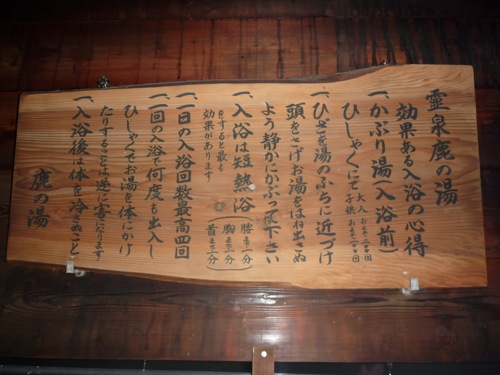 霊泉鹿の湯
効果ある入浴の心得
一、かぶり湯(入浴前)
ひしゃくにて 大人 およそ二〇〇回
子供 およそ一〇〇回
一、ひざを湯のふちに近づけ
頭をさげお湯をはね出さぬ
よう静かにかぶって下さい
一、入浴は短熱浴(腰まで一分
胸まで一分
首まで一分)
をすると最も
効果があります
一、一日の入浴回数最高四回
一、一回の入浴で何度も出入し
ひしゃくでお湯を体にかけ
たりすることは逆に害になります
一、入浴後は体を冷さぬこと
鹿の湯